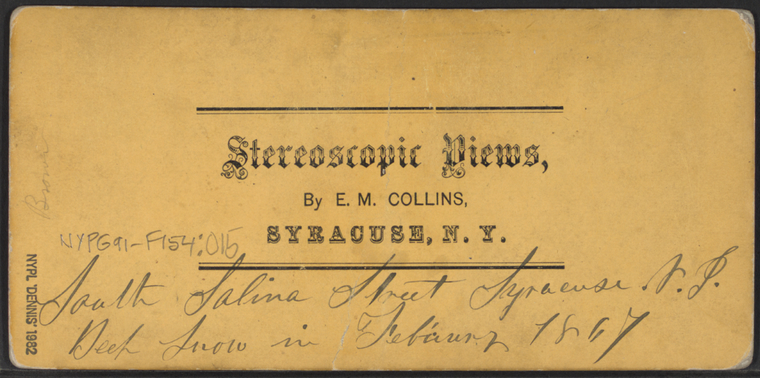 Stereoscopic Views,
By E. M. COLLINS,
SYRACUSE, N. Y.
Brown
NYPG91-F154:015
NYPL 'DENNIS' 1982
South Salina Street Syracuse N.Y.
Deep Snow in Febuary 1867